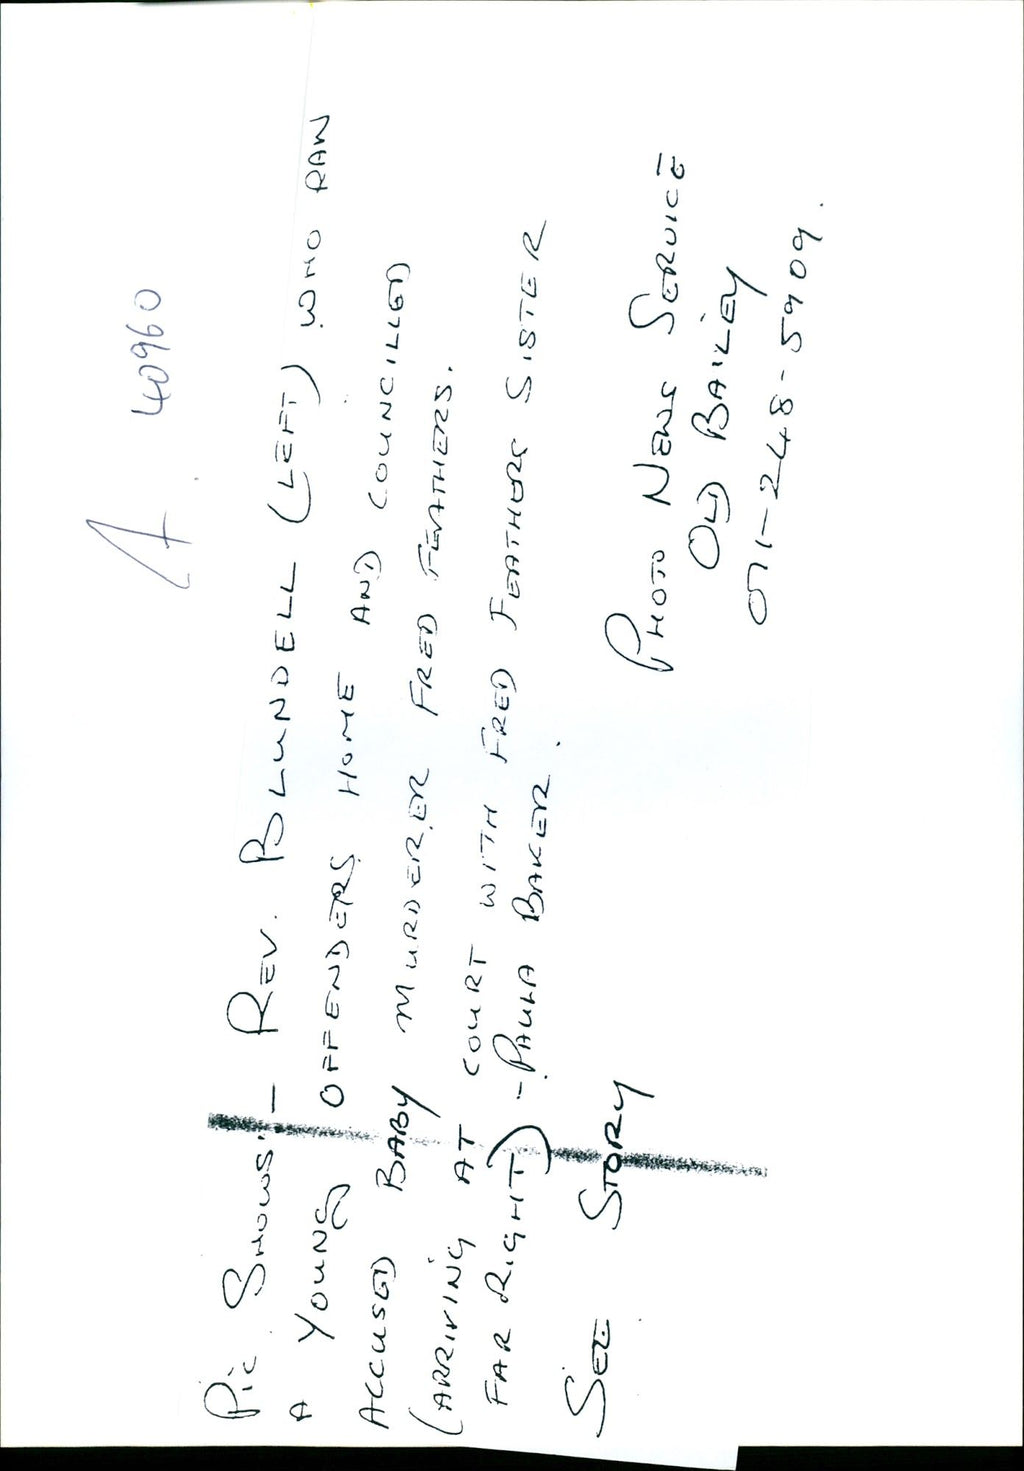 A 40960
Pic Shows:- REV. BLUNDELL (LEFT) WHO RAN
A YOUNG OFFENDERS HOME AND COUNCILLED
ACCUSED BABY MURDERER FRED FEATHERS.
(ARRIVING AT COURT WITH FRED FEATHERS SISTER
FAR RIGHT) - PAULA BAKER.
SEE STORY
PHOTO NEWS SERVICE
OLD BAILEY
071-248-5909.